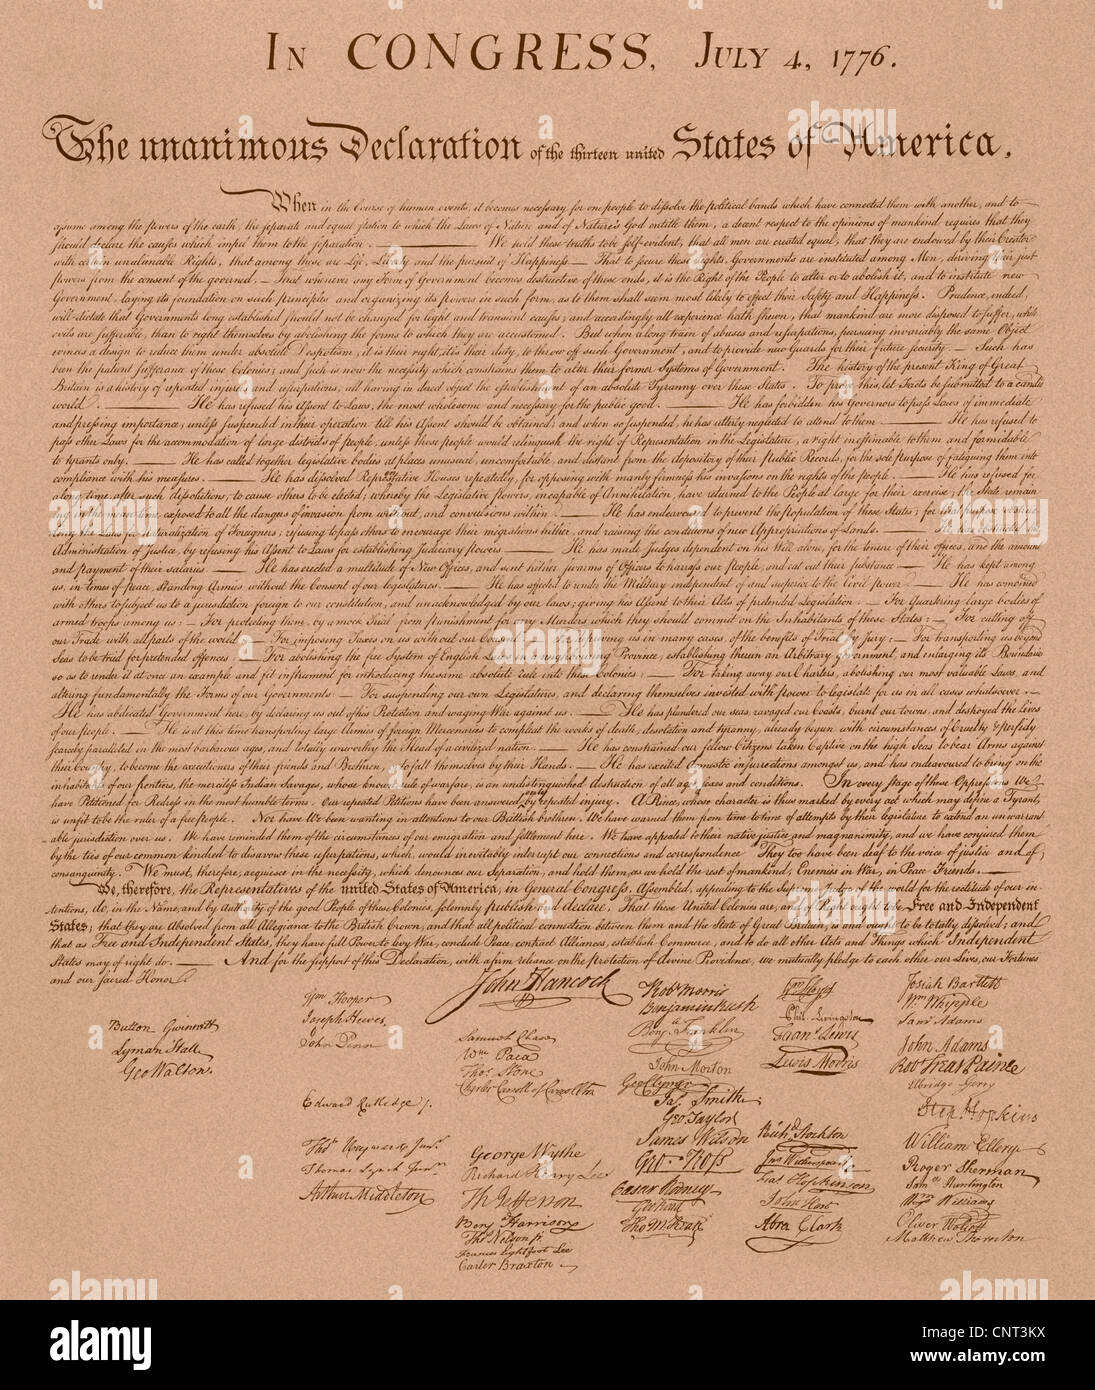 IN CONGRESS, JULY 4, 1776.
The unanimous Declaration of the thirteen united States of America,
When in the Course of human events, it becomes necessary for one people to dissolve the political bands which have connected them with another, and to
assume among the powers of the earth, the separate and equal station to which the Laws of Nature and of Nature's God entitle them, a decent respect to the opinions of mankind requires that they
should declare the causes which impel them to the separation. — We hold these truths to be self-evident, that all men are created equal, that they are endowed by their Creator
with certain unalienable Rights, that among these are Life, Liberty and the pursuit of Happiness — That to secure these rights, Governments are instituted among Men, deriving their just
powers from the consent of the governed, — That whenever any Form of Government becomes destructive of these ends, it is the Right of the People to alter or to abolish it, and to institute new
Government, laying its foundation on such principles and organizing its powers in such form, as to them shall seem most likely to effect their Safety and Happiness. Prudence, indeed,
will dictate that Governments long established should not be changed for light and transient causes; and accordingly all experience hath shewn, that mankind are more disposed to suffer, while
evils are sufferable, than to right themselves by abolishing the forms to which they are accustomed. But when a long train of abuses and usurpations, pursuing invariably the same Object
evinces a design to reduce them under absolute Despotism, it is their right, it is their duty, to throw off such Government, and to provide new Guards for their future security. — Such has
been the patient sufferance of these Colonies; and such is now the necessity which constrains them to alter their former Systems of Government. The history of the present King of Great
Britain is a history of repeated injuries and usurpations, all having in direct object the establishment of an absolute Tyranny over these States. To prove this, let Facts be submitted to a candid
world. — He has refused his Assent to Laws, the most wholesome and necessary for the public good. — He has forbidden his Governors to pass Laws of immediate
and pressing importance, unless suspended in their operation till his Assent should be obtained; and when so suspended, he has utterly neglected to attend to them. — He has refused to
pass other Laws for the accommodation of large districts of people, unless those people would relinquish the right of Representation in the Legislature, a right inestimable to them and formidable
to tyrants only. — He has called together legislative bodies at places unusual, uncomfortable, and distant from the depository of their Public Records, for the sole purpose of fatiguing them into
compliance with his measures. — He has dissolved Representative Houses repeatedly, for opposing with manly firmness his invasions on the rights of the people. — He has refused for
a long time, after such dissolutions, to cause others to be elected; whereby the Legislative powers, incapable of Annihilation, have returned to the People at large for their exercise; the State remain
ing in the mean time exposed to all the dangers of invasion from without, and convulsions within. — He has endeavoured to prevent the population of these States; for that purpose obstruc
ting the Laws for Naturalization of Foreigners; refusing to pass others to encourage their migrations hither, and raising the conditions of new Appropriations of Lands. — He has obstructed the
Administration of Justice, by refusing his Assent to Laws for establishing Judiciary powers. — He has made Judges dependent on his Will alone, for the tenure of their offices, and the amount
and payment of their salaries. — He has erected a multitude of New Offices, and sent hither swarms of Officers to harass our people, and eat out their substance. — He has kept among
us, in times of peace, Standing Armies without the Consent of our legislatures. — He has affected to render the Military independent of and superior to the Civil power. — He has combined
with others to subject us to a jurisdiction foreign to our constitution, and unacknowledged by our laws; giving his Assent to their Acts of pretended Legislation: — For Quartering large bodies of
armed troops among us: — For protecting them, by a mock Trial, from punishment for any Murders which they should commit on the Inhabitants of these States: — For cutting off
our Trade with all parts of the world: — For imposing Taxes on us without our Consent: — For depriving us in many cases, of the benefits of Trial by Jury: — For transporting us beyond
Seas to be tried for pretended offences: — For abolishing the free System of English Laws in a neighbouring Province, establishing therein an Arbitrary government, and enlarging its Boundaries
so as to render it at once an example and fit instrument for introducing the same absolute rule into these Colonies: — For taking away our Charters, abolishing our most valuable Laws, and
altering fundamentally the Forms of our Governments: — For suspending our own Legislatures, and declaring themselves invested with power to legislate for us in all cases whatsoever. —
He has abdicated Government here, by declaring us out of his Protection and waging War against us. — He has plundered our seas, ravaged our Coasts, burnt our towns, and destroyed the lives
of our people. — He is at this time transporting large Armies of foreign Mercenaries to compleat the works of death, desolation and tyranny, already begun with circumstances of Cruelty & perfidy
scarcely paralleled in the most barbarous ages, and totally unworthy the Head of a civilized nation. — He has constrained our fellow Citizens taken Captive on the high Seas to bear Arms against
their Country, to become the executioners of their friends and Brethren, or to fall themselves by their Hands. — He has excited domestic insurrections amongst us, and has endeavoured to bring on the
inhabitants of our frontiers, the merciless Indian Savages, whose known rule of warfare, is an undistinguished destruction of all ages, sexes and conditions. In every stage of these Oppressions We
have Petitioned for Redress in the most humble terms: Our repeated Petitions have been answered only by repeated injury. A Prince, whose character is thus marked by every act which may define a Tyrant,
is unfit to be the ruler of a free people. Nor have We been wanting in attentions to our Brittish brethren. We have warned them from time to time of attempts by their legislature to extend an unwarrant
able jurisdiction over us. We have reminded them of the circumstances of our emigration and settlement here. We have appealed to their native justice and magnanimity, and we have conjured them
by the ties of our common kindred to disavow these usurpations, which, would inevitably interrupt our connections and correspondence. They too have been deaf to the voice of justice and of
consanguinity. We must, therefore, acquiesce in the necessity, which denounces our Separation, and hold them, as we hold the rest of mankind, Enemies in War, in Peace Friends. —
We, therefore, the Representatives of the united States of America, in General Congress, Assembled, appealing to the Supreme Judge of the world for the rectitude of our in
tentions, do, in the Name, and by Authority of the good People of these Colonies, solemnly publish and declare, That these United Colonies are, and of Right ought to be Free and Independent
States; that they are Absolved from all Allegiance to the British Crown, and that all political connection between them and the State of Great Britain, is and ought to be totally dissolved; and
that as Free and Independent States, they have full Power to levy War, conclude Peace, contract Alliances, establish Commerce, and to do all other Acts and Things which Independent
States may of right do. — And for the support of this Declaration, with a firm reliance on the protection of divine Providence, we mutually pledge to each other our Lives, our Fortunes
and our sacred Honor.
Button Gwinnett
Lyman Hall
Geo Walton.
Wm Hooper
Joseph Hewes,
John Penn
Edward Rutledge /.
Thos Heyward Junr.
Thomas Lynch Junr.
Arthur Middleton
John Hancock
Samuel Chase
Wm Paca
Thos Stone
Charles Carroll of Carrollton
George Wythe
Richard Henry Lee
Th Jefferson
Benj Harrison
Thos Nelson jr.
Francis Lightfoot Lee
Carter Braxton
Robt Morris
Benjamin Rush
Benj Franklin
John Morton
Geo Clymer
Jas Smith
Geo Taylor
James Wilson
Geo. Ross
Caesar Rodney
Geo Read
Tho M:Kean
Wm Floyd
Phil. Livingston
Frans Lewis
Lewis Morris
Richd Stockton
Jno Witherspoon
Fras Hopkinson
John Hart
Abra Clark
Josiah Bartlett
Wm Whipple
Saml Adams
John Adams
Robt Treat Paine
Elbridge Gerry
Step Hopkins
William Ellery
Roger Sherman
Saml Huntington
Wm Williams
Oliver Wolcott
Matthew Thornton
alamy
alamy
alamy
alamy
alamy
a
a
a
a
a
alamy
Image ID: CNT3KX
www.alamy.com